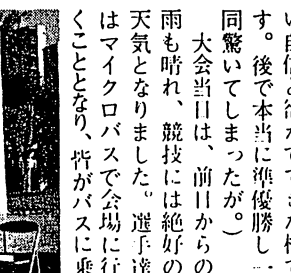 い自信
す。後で本当に準優勝し一
同驚いてしまったが。)
大会当日は、前日からの
雨も晴れ、競技には絶好の
天気となりました。選手達
はマイクロバスで会場に行
くこととなり、皆がバスに乗